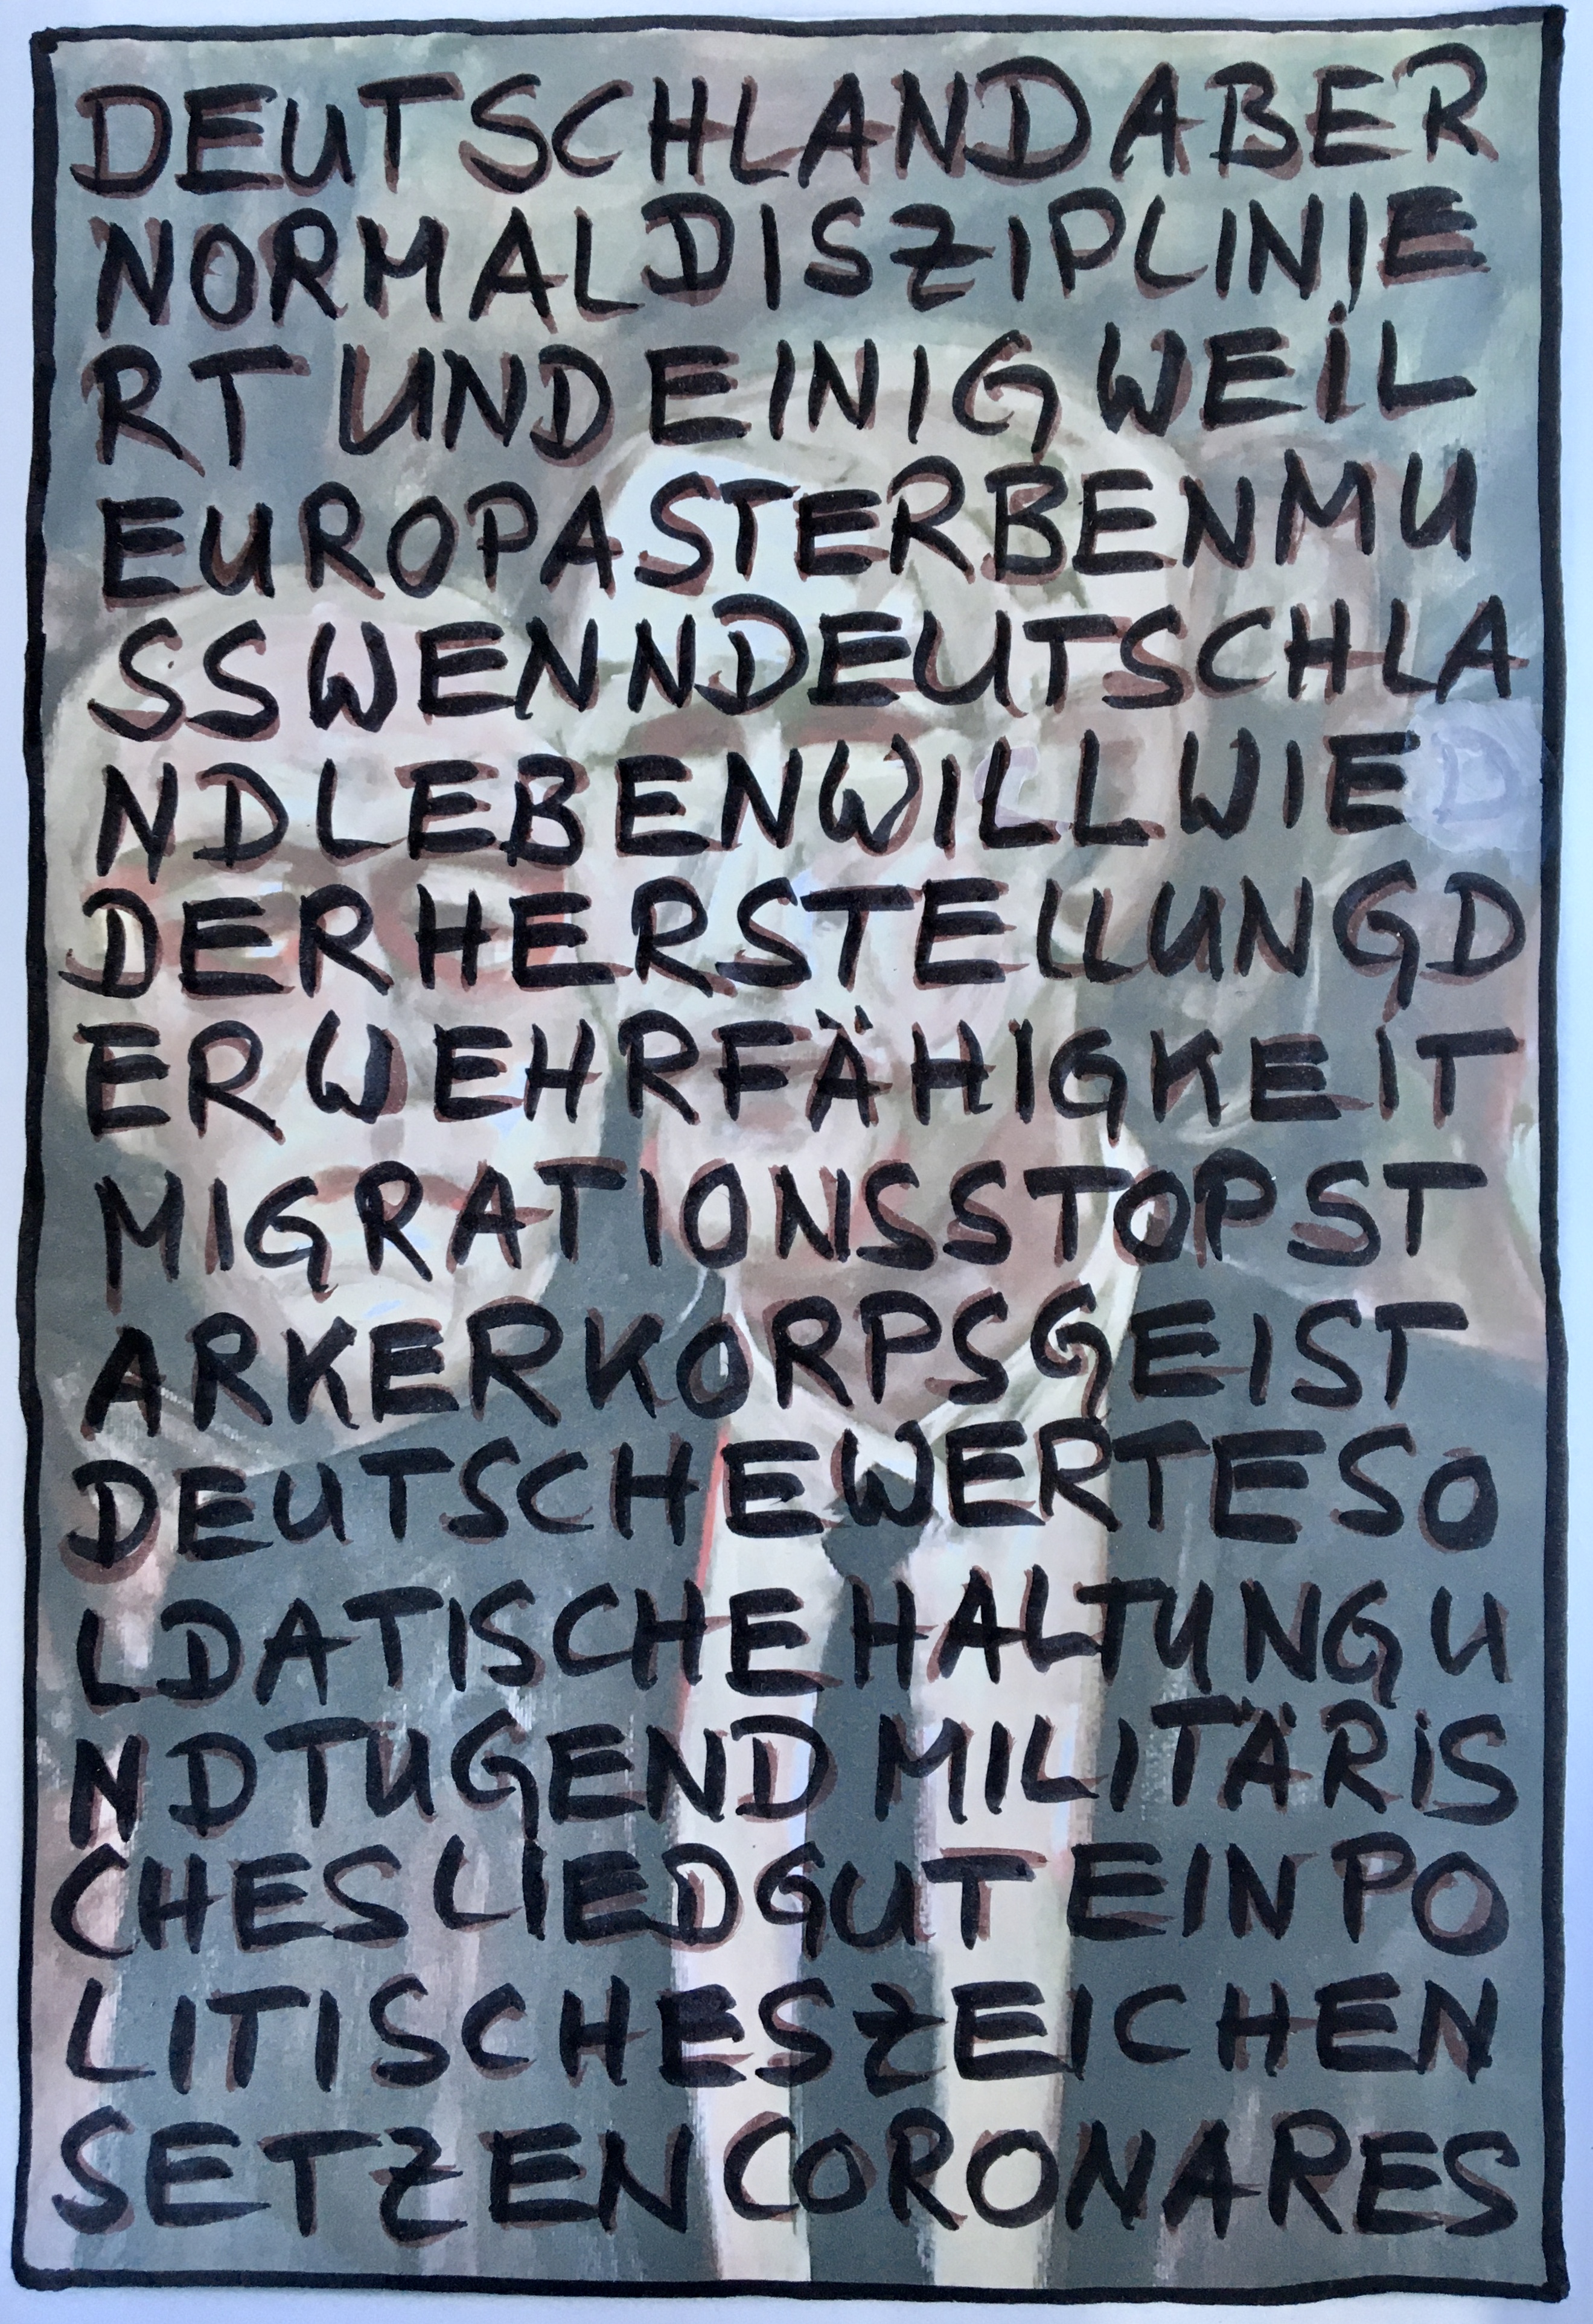 DEUTSCHLAND ABER
NORMAL DISZIPLINIE
RT UND EINIG WEIL
EUROPA STERBEN MU
SS WENN DEUTSCHLA
ND LEBEN WILL WIE
DERHERSTELLUNG D
ER WEHRFÄHIGKEIT
MIGRATIONSSTOP ST
ARKER KORPSGEIST
DEUTSCHE WERTE SO
LDATISCHE HALTUNG U
ND TUGEND MILITÄRIS
CHES LIEDGUT EIN PO
LITISCHES ZEICHEN
SETZEN CORONA RES